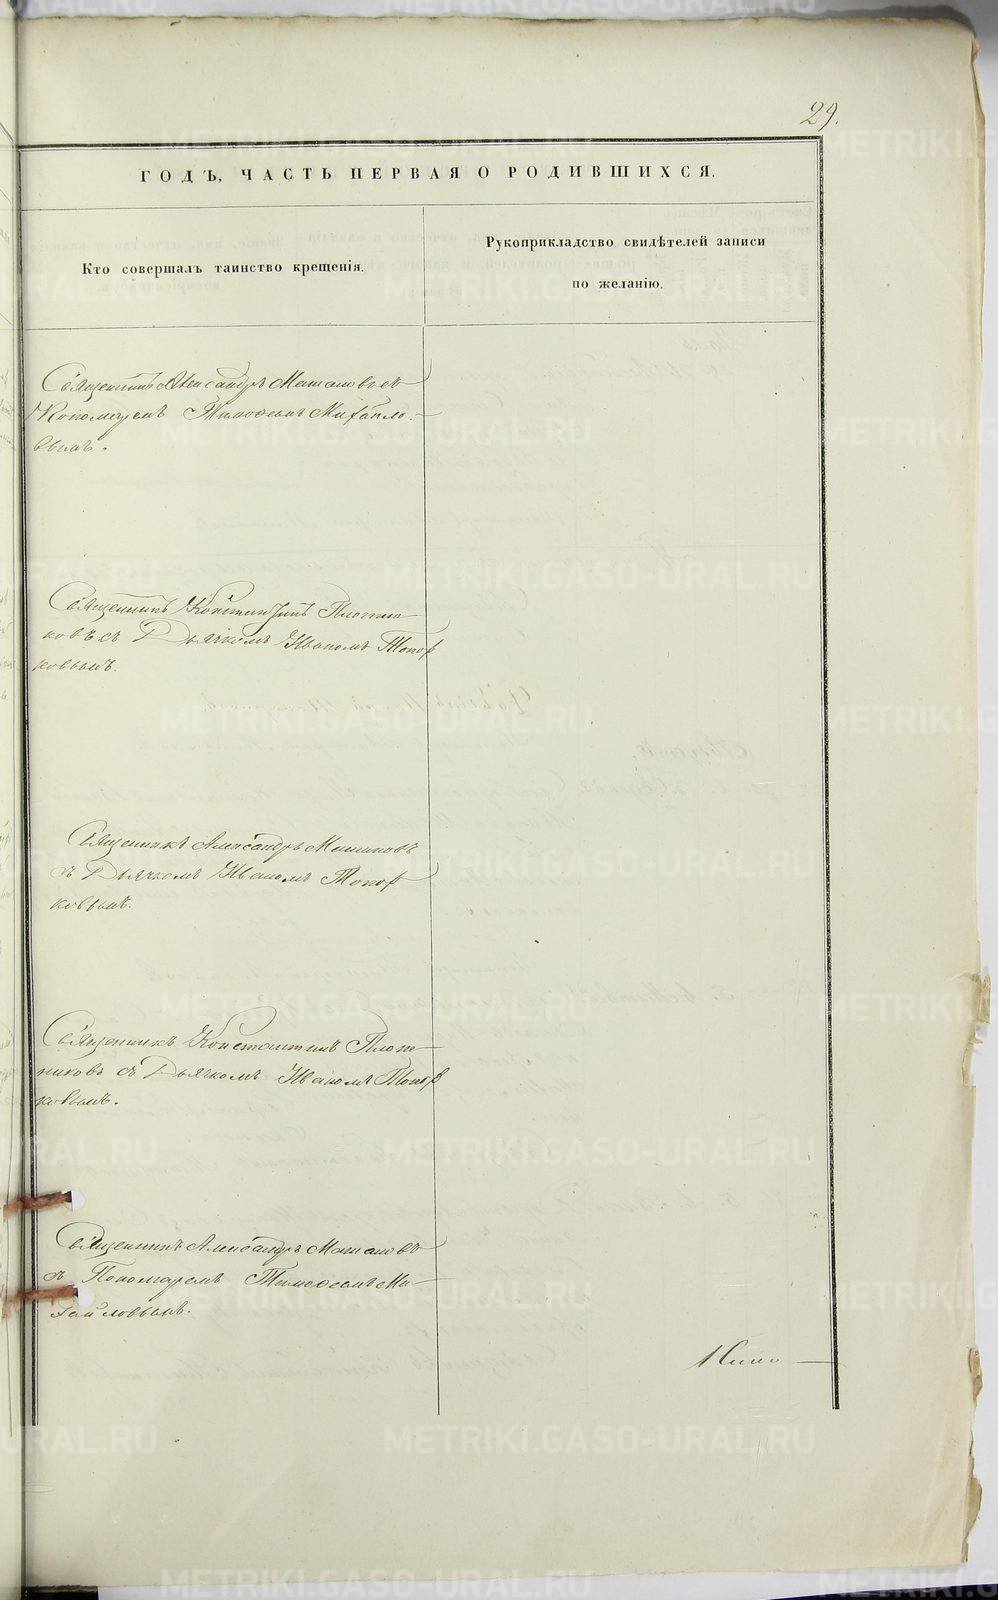 29.
ГОДЪ, ЧАСТЬ ПЕРВАЯ О РОДИВШИХСЯ.
Кто совершалъ таинство крещенія.
Рукоприкладство свидѣтелей записи
по желанію.
Священникъ Александръ Маш съ
Пономаремъ Тимофеемъ Михайло-
вымъ.
Священникъ Константинъ Плотни-
ковъ съ Дьячкомъ Иваномъ Топор
ковымъ.
Священникъ Александръ
съ Дьячкомъ Иваномъ Топор
ковымъ.
Священникъ Константинъ Плот-
никовъ съ Дьячкомъ Иваномъ Топор
ковымъ.
Священникъ Александръ
съ Пономаремъ Тимофеемъ Ми-
хайловымъ.
METRIKI.GASO-URAL.RU